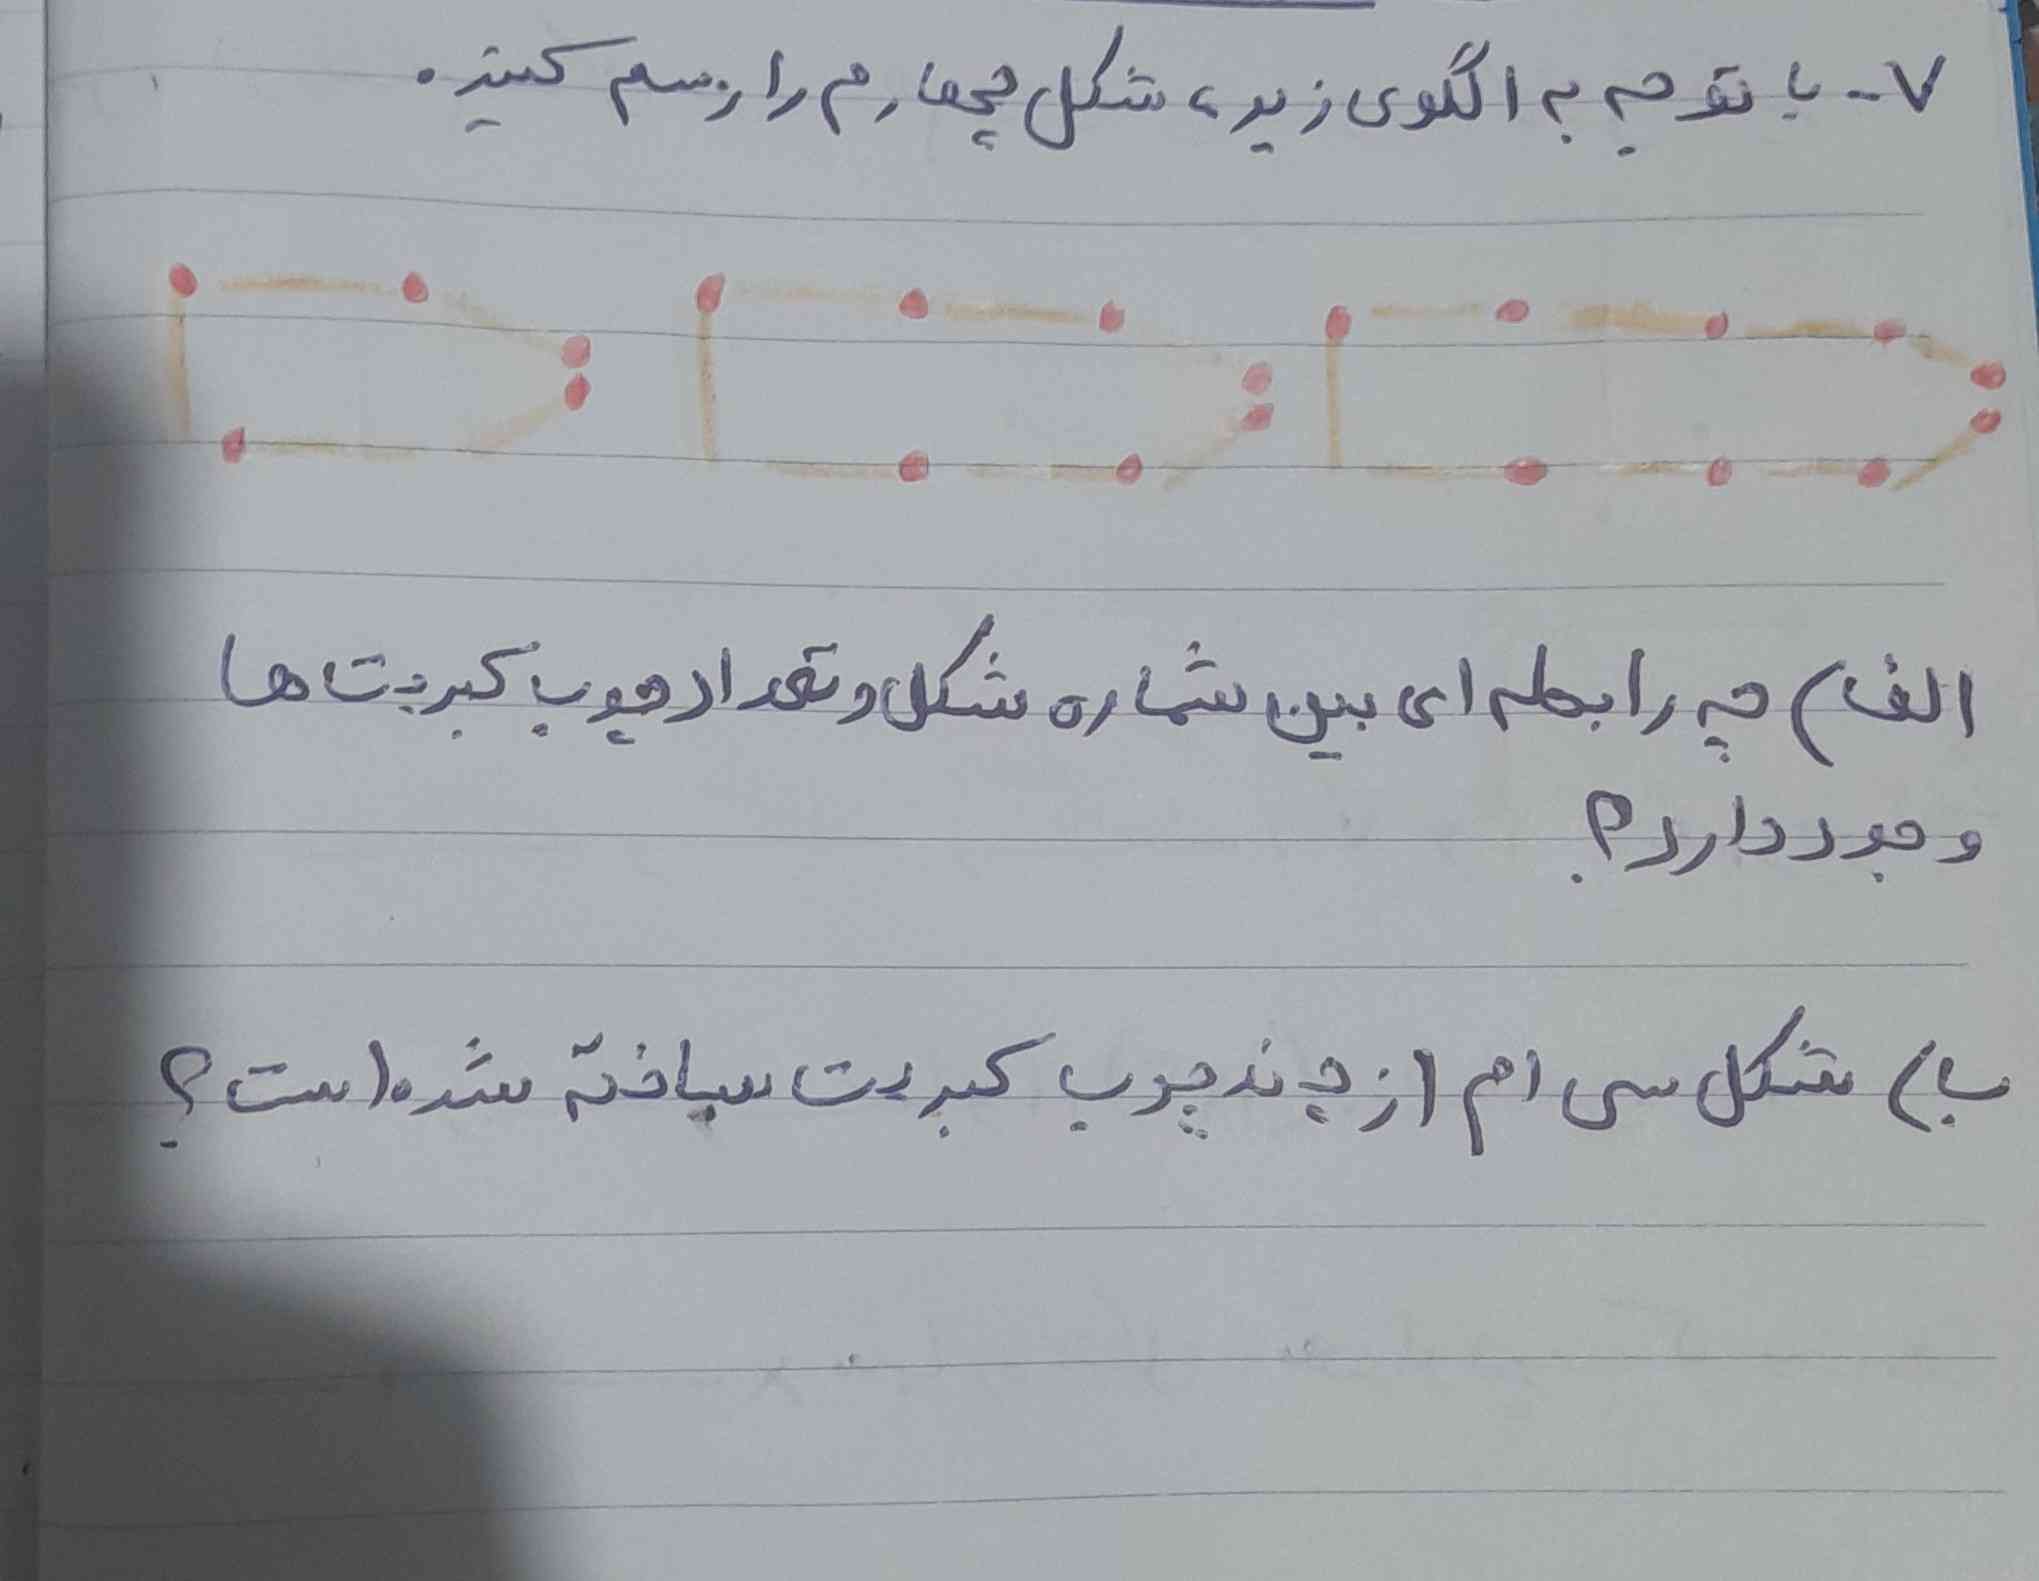 ۷- با توجه به الگوی زیر، شکل چهارم را رسم کنید.
الف) چه رابطه ای بین شماره شکل و تعداد چوب کبریت ها
وجود دارد؟
ب) شکل سی ام از چند چوب کبریت ساخته شده است؟